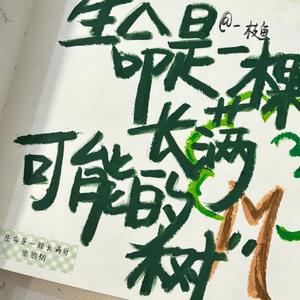 @一枝鱼
生命是一棵
长满
可能的
树
生命是一棵长满可
能的树